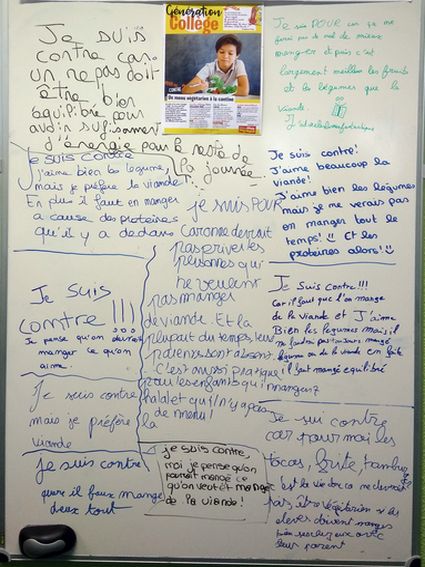 Je suis
contre car
un repas doit
être bien
équilibré pour
avoir
d'énergie pour le reste de
la journée.
Génération
Collège
CONTRE
Un menu végétarien à la cantine
Je suis POUR car ça me
pas de mal de mieux
manger et puis c'est
largement meilleur les fruits
et les légumes que la
viande.
Je suis contre
j'aime bien les légumes,
mais je préfère la viande
En plus il faut en manger
a cause des protéines
qu'il y a dedans
je suis POUR
Car on ne devrait
pas priver les
personnes qui
ne veulent
pas manger
de viande. Et la
plupart du temps leur
sont absent.
C'est aussi pratique
pour les enfants qui mangus
halal et qu'il n'y a pas
de menu!
Je suis contre!
J'aime beaucoup la
viande!
J'aime bien les légumes
mais je me verais pas
en manger tout le
temps! Et les
protéines alors!
Je suis
contre !!!
Je pense qu'on
manger ce qu'on
aime.
Je Suis Contre!!!
Car il faut que l'on mange
de la viande et J'aime
Bien les légumes mais il
ne faudra pas toujours mangé
légume ou de la viande en faite
il faut mangé équilibré
Je suis contre
mais je préfère la
viande
je suis contre
il faux mange
deux tout
je suis contre,
moi je pense qu'on
pourrait mangé ce
qu'on veut et mange
de la viande!
Je sui contre
car pour moi les
tacos, frite,
c'est la vie donc on ne devrait
pas être végétarien et les
eleves doivent manges
chez eux avec
leur parent